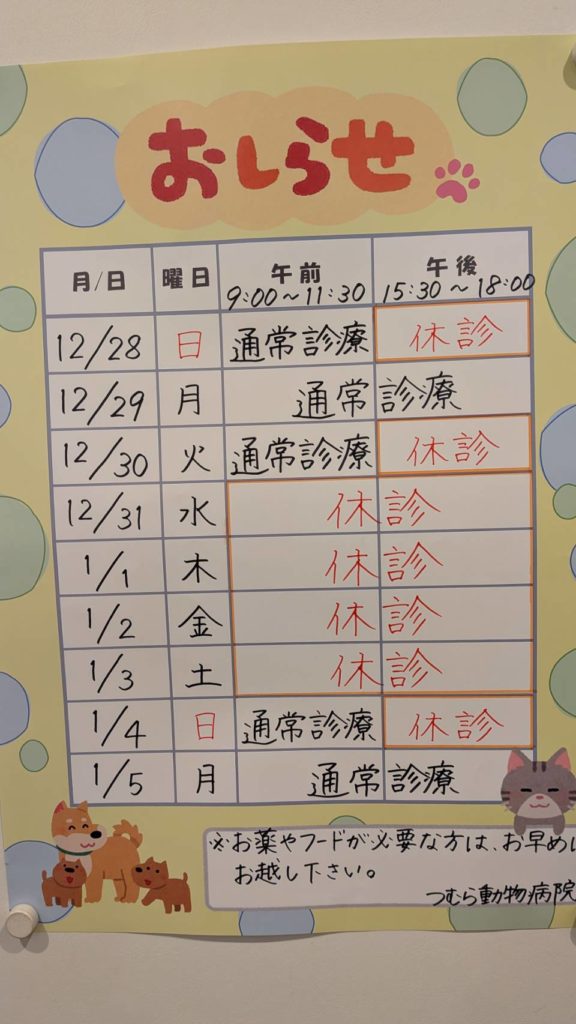 おしらせ
月/日 曜日 午前 午後
9:00～11:30 15:30～18:00
12/28 日 通常診療 休診
12/29 月 通常診療
12/30 火 通常診療 休診
12/31 水 休診
1/1 木 休診
1/2 金 休診
1/3 土 休診
1/4 日 通常診療 休診
1/5 月 通常診療
※お薬やフードが必要な方は、お早めに
お越し下さい。
つむら動物病院